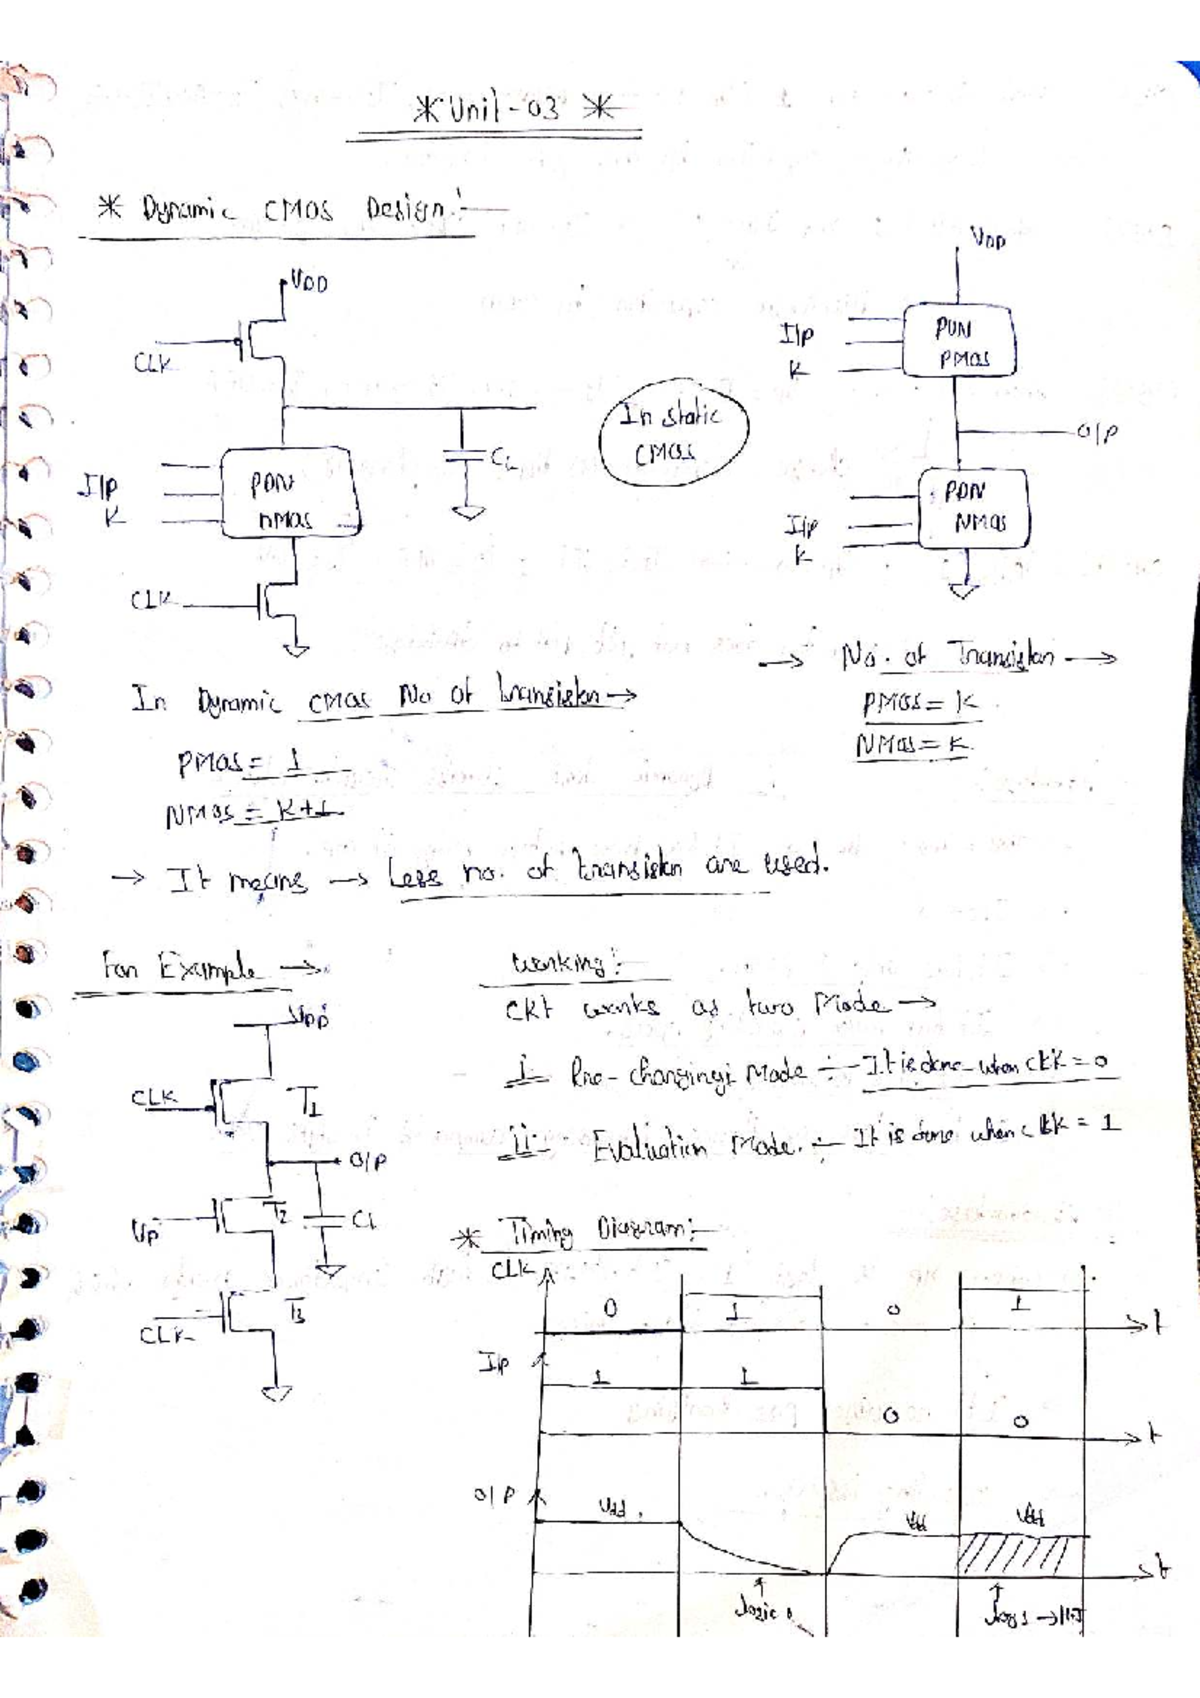 * Unit-03 *
* Dynamic CMOS Design:-
VDD
CLK
I/P
K
PDN
nMOS
CL
CLK
In static
CMOS
VDD
I/P
K
PUN
PMOS
O/P
I/P
K
PDN
NMOS
In Dynamic CMOS No of transistor →
PMOS = 1
NMOS = K+1
→ No. of Transistor →
PMOS = K
NMOS = K
→ It means → Less no. of transistor are used.
For Example →
VDD
CLK
T1
O/P
VP
T2
CL
CLK
T3
Working:-
CKt works as two Mode →
i. Pre-charging Mode :- It is done when CLK = 0
ii. Evaluation Mode :- It is done when CLK = 1
* Timing Diagram:-
CLK
0 1 0 1
t
I/p
1 1 0 0
t
O/P
Vdd Vdd Vdd
t
logic 0